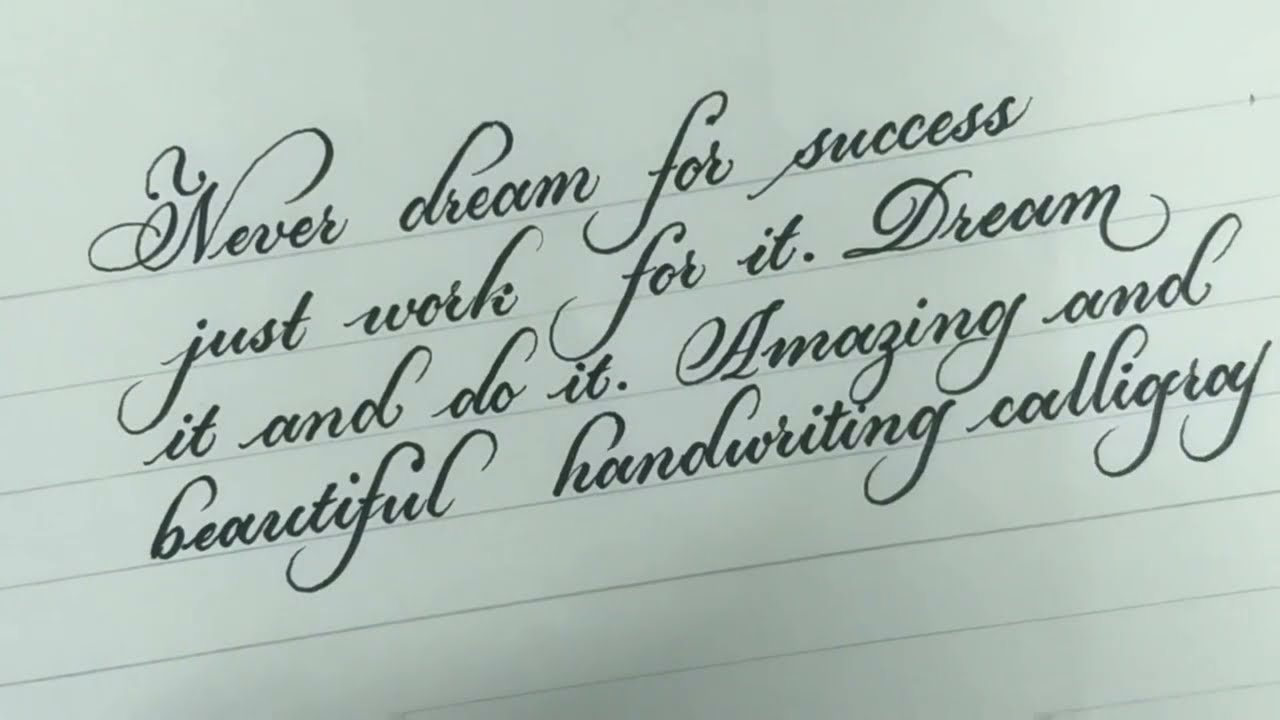 Never dream for success
just work for it. Dream
it and do it. Amazing and
beautiful handwriting calligroy